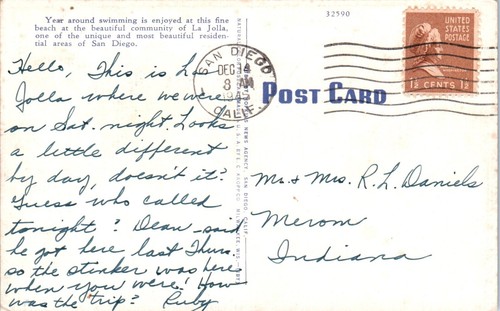 Year around swimming is enjoyed at this fine
beach at the beautiful community of La Jolla,
one of the unique and most beautiful residen-
tial areas of San Diego.
32590
UNITED
STATES
POSTAGE
1½ CENTS 1½
SAN DIEGO
DEC 14
8 AM
CALIF.
POST CARD
Hello, This is La
Jolla where we were
on Sat. night. Looks
a little different
by day, doesn't it?
Guess who called
tonight? Dean - said
he got here last Thurs.
so the stinker was here
when you were! How
was the trip? Ruby
Mr. & Mrs. R. L. Daniels
Merom
Indiana